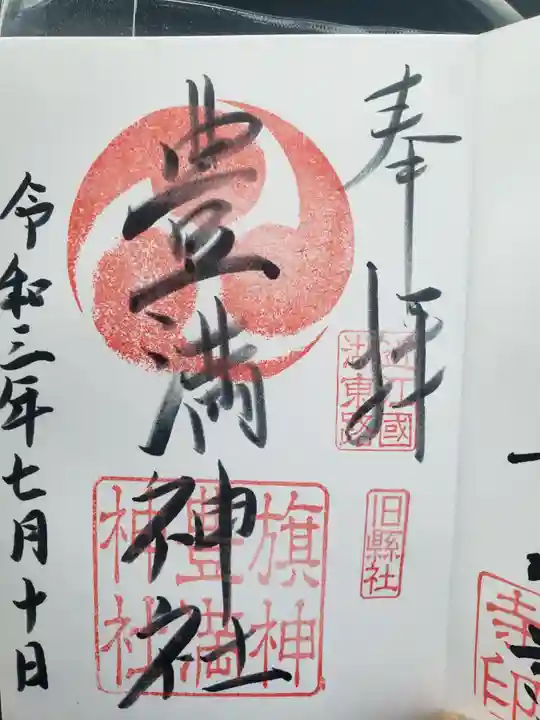 奉拝
近江國
湖東路
旧縣社
豊満神社
旗神
豊満
神社
令和三年七月十日
寺印